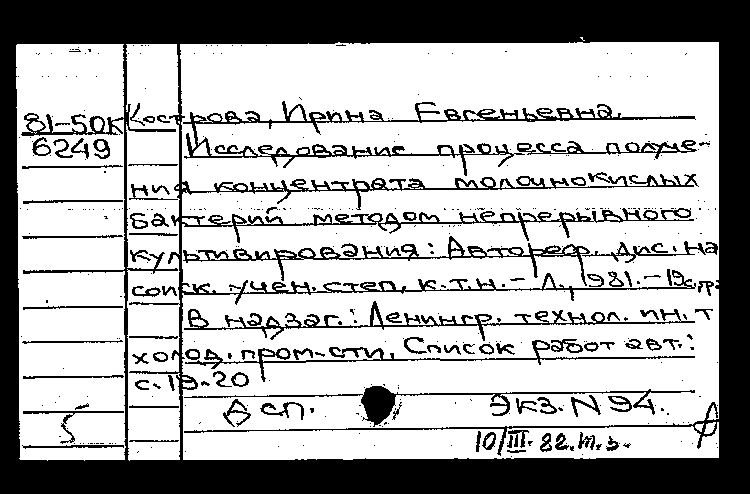 81-50К Кострова, Ирина Евгеньевна.
6249 Исследование процесса получе-
ния концентрата молочнокислых
бактерий методом непрерывного
культивирования: Автореф. дис. на
соиск. учен. степ. к.т.н. - Л., 1981. - 19с,
В надзаг.: Ленингр. технол. ин. т
холод. пром-сти. Список работ авт.:
с. 19-20
5 В сп. Экз. N 94.
10/III-82.